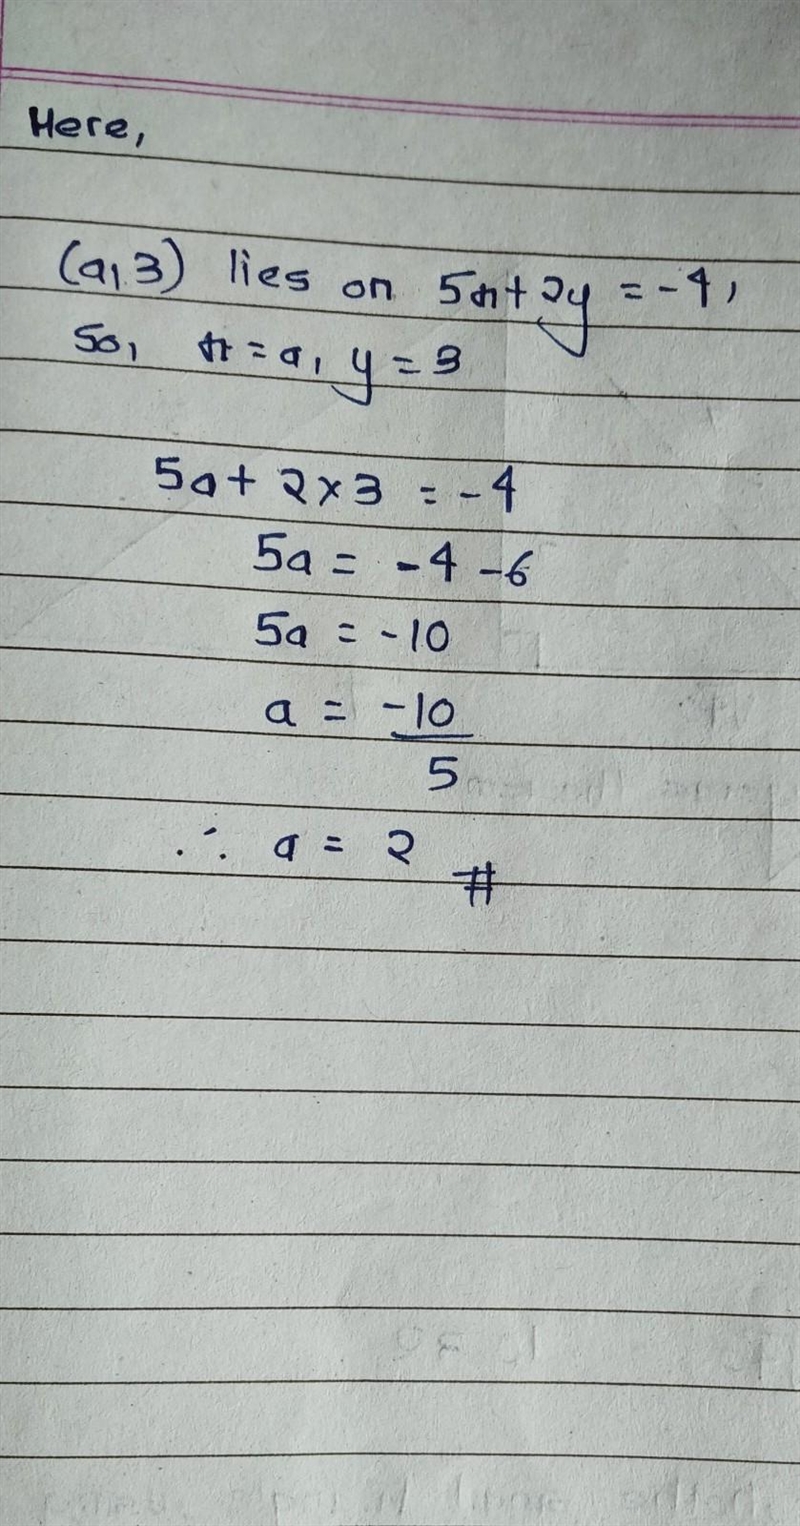 Here,
(a,3) lies on 5x+2y = -4,
So, x = a, y = 3
5a + 2×3 = -4
5a = -4 -6
5a = -10
a = -10
5
∴ a = 2 #